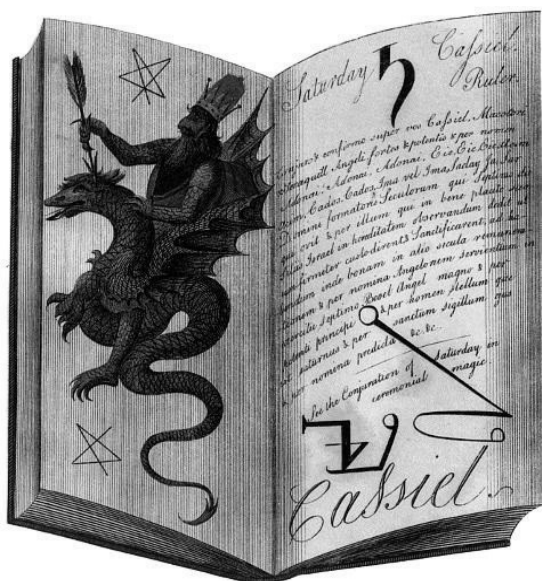 Saturday ♄ Caſsiel.
Ruler.
confirmo super vos Caſsiel. Macatori
Angeli fortes & potentis & per nomen
Adonai. Adonai. Eie. Eie. Eie.
Cados. Cados. Ima vel Ima. Saday. Ja. Sar
Domini formatoris Seculorum qui Septimo die
& per illum qui in bene placito suo
Israel in hereditatem observandum dedit
custodirent & Sanctificarent, ad
inde bonam in alio secula remunera
& per nomina Angelorum servientium in
septimo Angel magno & per
principe & per nomen stellum que
saturnus & per sanctum sigillum ejus
per nomina predicta &c. &c.
See the Conjuration of Saturday in
ceremonial magic
Caſsiel.